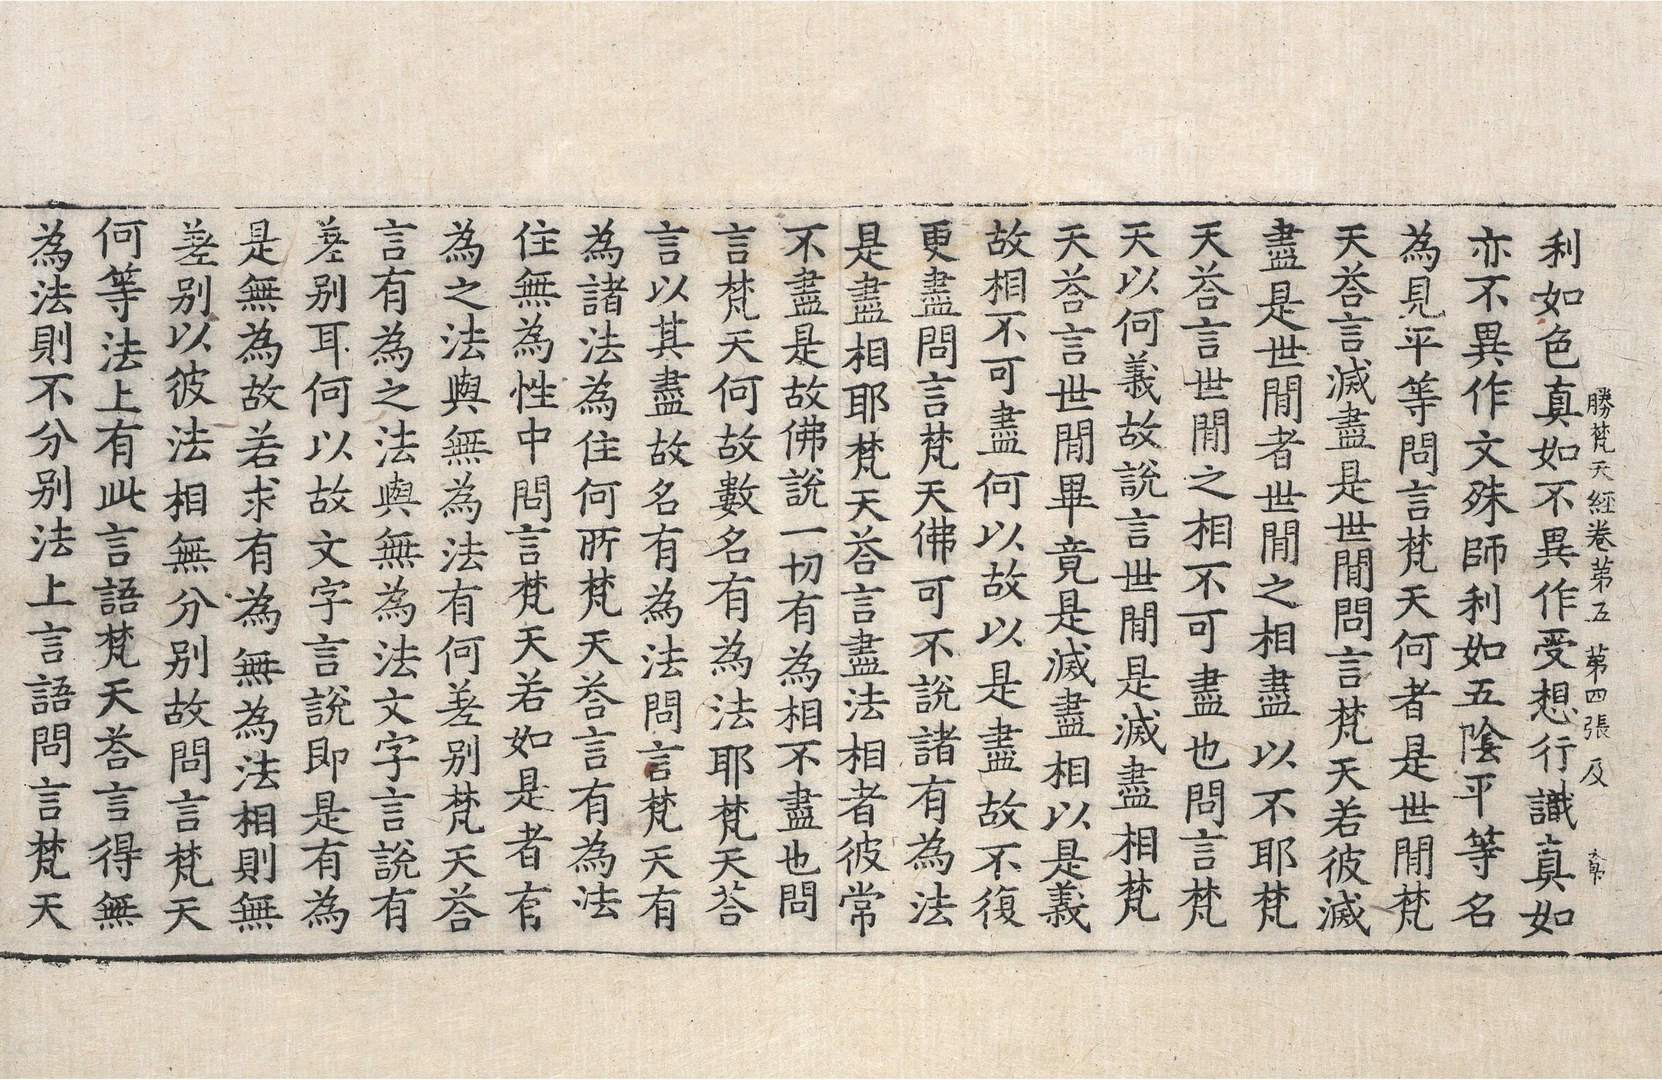 勝梵天經卷第五　第四張　及
利如色真如不異作受想行識真如
亦不異作文殊師利如五陰平等名
為見平等問言梵天何者是世間梵
天荅言滅盡是世間問言梵天若彼滅
盡是世間者世間之相盡以不耶梵
天荅言世間之相不可盡也問言梵
天以何義故說言世間是滅盡相梵
天荅言世間畢竟是滅盡相以是義
故相不可盡何以故以是盡故不復
更盡問言梵天佛可不說諸有為法
是盡相耶梵天荅言盡法相者彼常
不盡是故佛說一切有為相不盡也問
言梵天何故數名有為法耶梵天荅
言以其盡故名有為法問言梵天有
為諸法為住何所梵天荅言有為法
住無為性中問言梵天若如是者有
為之法與無為法有何差別梵天荅
言有為之法與無為法文字言說有
差別耳何以故文字言說即是有為
是無為故若求有為無為法相則無
差別以彼法相無分別故問言梵天
何等法上有此言語梵天荅言得無
為法則不分別法上言語問言梵天